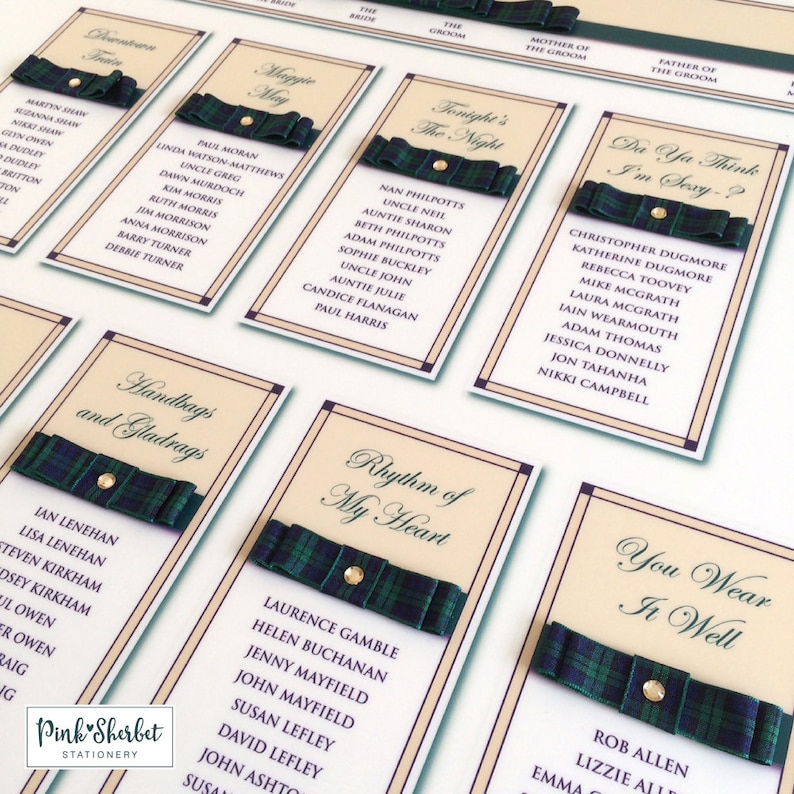 THE BRIDE
THE
BRIDE
THE
GROOM
MOTHER OF
THE GROOM
FATHER OF
THE GROOM
Downtown
Train
MARTYN SHAW
SUZANNA SHAW
NIKKI SHAW
GLYN OWEN
DUDLEY
BRITTON
BRITTON
Maggie
May
PAUL MORAN
LINDA WATSON-MATTHEWS
UNCLE GREG
DAWN MURDOCH
KIM MORRIS
RUTH MORRIS
JIM MORRISON
ANNA MORRISON
BARRY TURNER
DEBBIE TURNER
Tonight's
The Night
NAN PHILPOTTS
UNCLE NEIL
AUNTIE SHARON
BETH PHILPOTTS
ADAM PHILPOTTS
SOPHIE BUCKLEY
UNCLE JOHN
AUNTIE JULIE
CANDICE FLANAGAN
PAUL HARRIS
Da Ya Think
I'm Sexy-?
CHRISTOPHER DUGMORE
KATHERINE DUGMORE
REBECCA TOOVEY
MIKE MCGRATH
LAURA MCGRATH
IAIN WEARMOUTH
ADAM THOMAS
JESSICA DONNELLY
JON TAHANHA
NIKKI CAMPBELL
Handbags
and Gladrags
IAN LENEHAN
LISA LENEHAN
STEVEN KIRKHAM
KIRKHAM
OWEN
OWEN
Rhythm of
My Heart
LAURENCE GAMBLE
HELEN BUCHANAN
JENNY MAYFIELD
JOHN MAYFIELD
SUSAN LEFLEY
DAVID LEFLEY
JOHN ASHTON
SUSAN
You Wear
It Well
ROB ALLEN
LIZZIE ALLE
EMMA
Pink Sherbet
STATIONERY